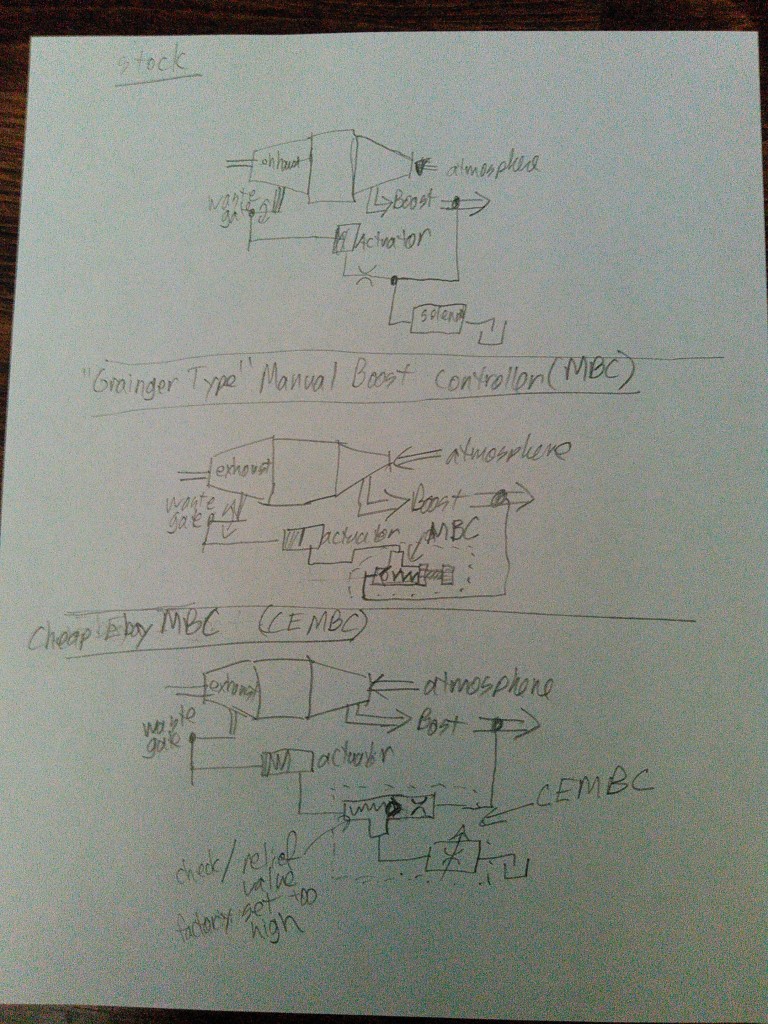 stock
exhaust
atmosphere
waste
gate
Boost
Actuator
"Grainger Type" Manual Boost Controller (MBC)
exhaust
atmosphere
waste
gate
Boost
actuator
MBC
Cheap Ebay MBC (CEMBC)
exhaust
atmosphere
waste
gate
Bost
actuator
CEMBC
check/relief
valve
factory set too
high